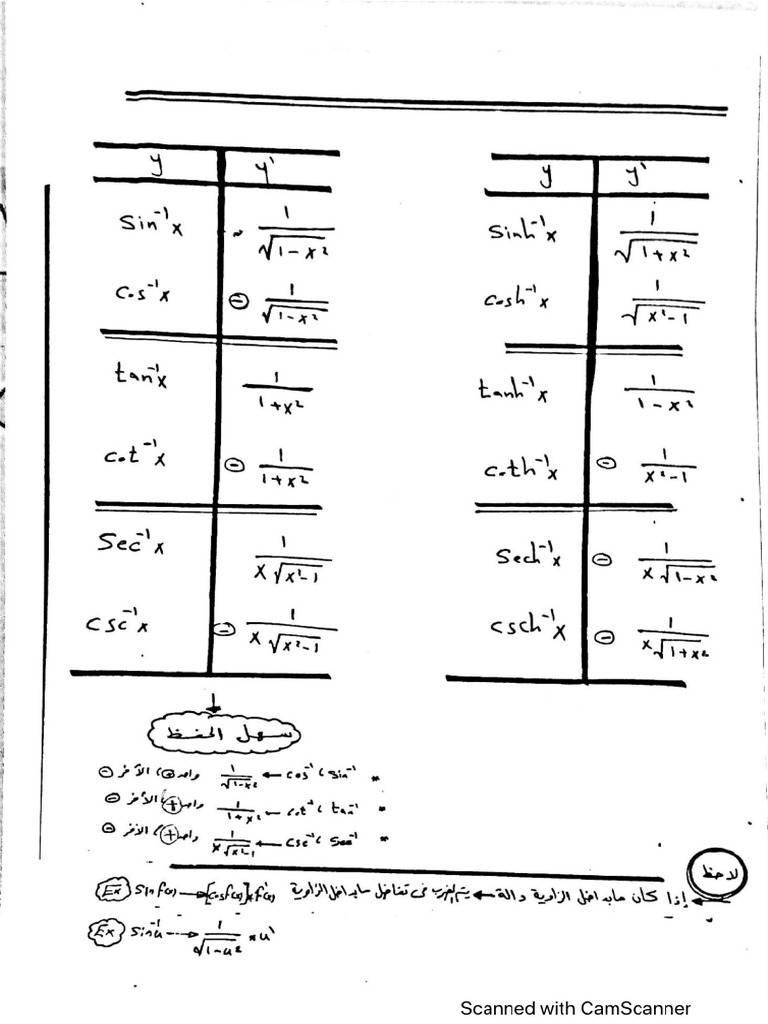 y y'
sin⁻¹x 1/√(1-x²)
cos⁻¹x ⊖ 1/√(1-x²)
tan⁻¹x 1/(1+x²)
cot⁻¹x ⊖ 1/(1+x²)
Sec⁻¹x 1/(x√(x²-1))
csc⁻¹x ⊖ 1/(x√(x²-1))
y y'
sinh⁻¹x 1/√(1+x²)
cosh⁻¹x 1/√(x²-1)
tanh⁻¹x 1/(1-x²)
coth⁻¹x ⊖ 1/(x²-1)
Sech⁻¹x ⊖ 1/(x√(1-x²))
csch⁻¹x ⊖ 1/(x√(1+x²))
↓
سهل الحفظ
* sin⁻¹ ، cos⁻¹ ← 1/√(1-x²) واحد ⊕ ، الأخر ⊖
* tan⁻¹ ، cot⁻¹ ← 1/(1+x²) واحد ⊕ ، الأخر ⊖
* Sec⁻¹ ، csc⁻¹ ← 1/(x√(x²-1)) واحد ⊕ ، الأخر ⊖
لاحظ
← إذا كان مابداخل الزاوية دالة ← يتم الضرب فى تفاضل مابداخل الزاوية
Ex sin f(x) → [cos f(x)] * f'(x)
Ex sin⁻¹u → 1/√(1-u²) * u'
Scanned with CamScanner